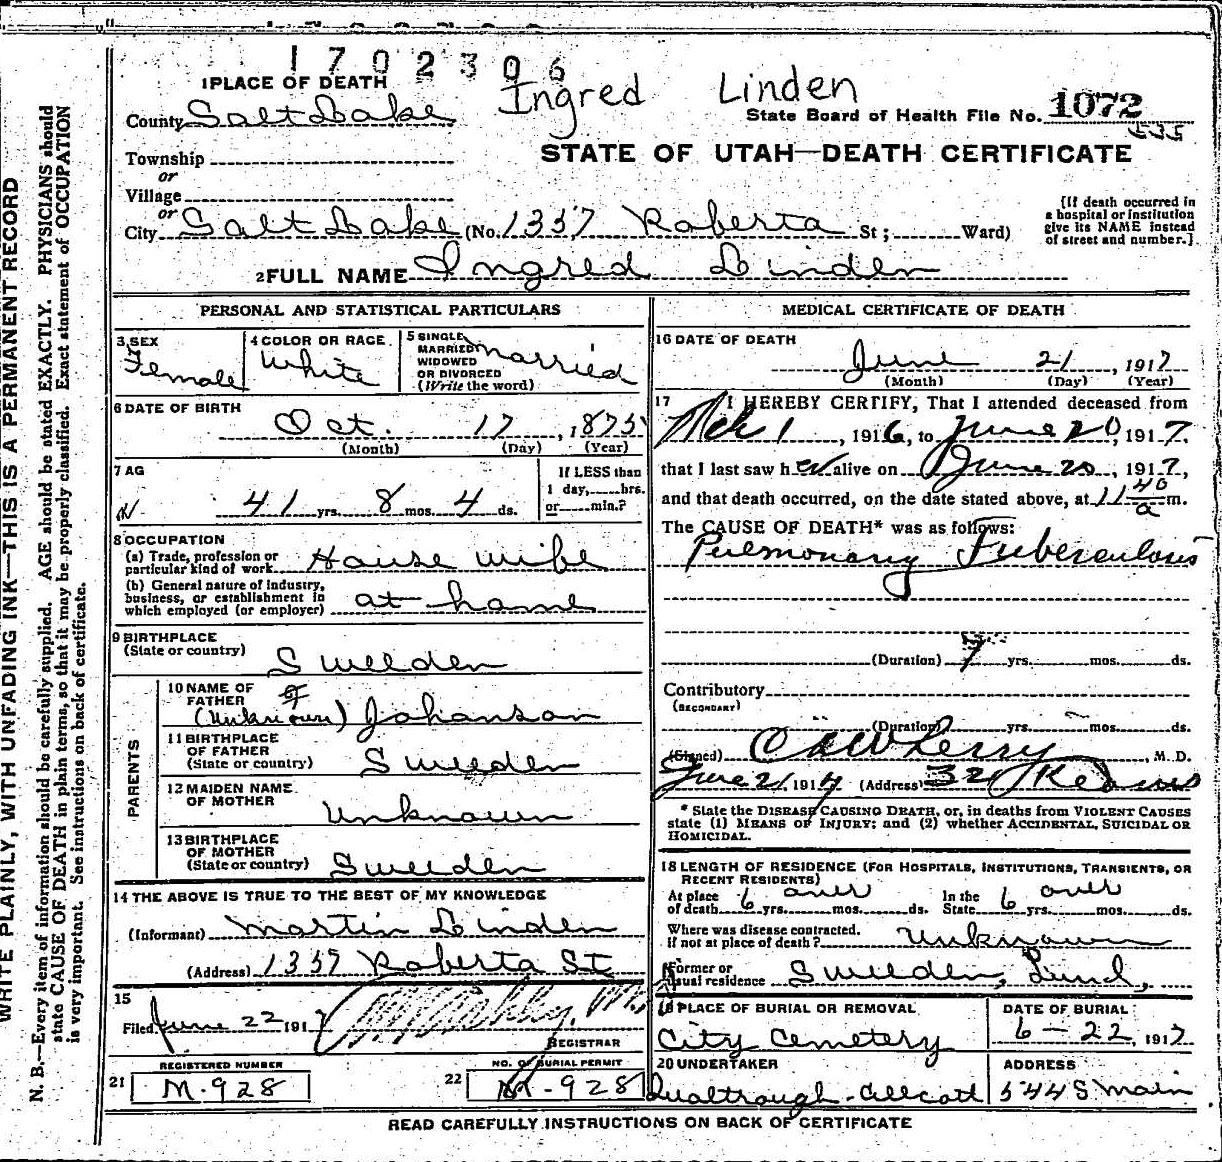 1702306
Ingred Linden
1 PLACE OF DEATH
County Salt Lake
State Board of Health File No. 1072
535
Township
or
STATE OF UTAH—DEATH CERTIFICATE
Village
or
City Salt Lake (No. 1337 Roberta St; Ward)
[If death occurred in
a hospital or institution
give its NAME instead
of street and number.]
2 FULL NAME Ingred Linden
PERSONAL AND STATISTICAL PARTICULARS
3 SEX
Female
4 COLOR OR RACE
White
5 SINGLE
MARRIED
WIDOWED
OR DIVORCED
(Write the word)
married
6 DATE OF BIRTH
Oct. 17, 1875
(Month) (Day) (Year)
7 AG
41 yrs. 8 mos. 4 ds.
If LESS than
1 day, hrs.
or min.?
8 OCCUPATION
(a) Trade, profession or
particular kind of work House wife
(b) General nature of industry,
business, or establishment in
which employed (or employer) at home
9 BIRTHPLACE
(State or country) Sweeden
PARENTS
10 NAME OF
FATHER (unknown) Johanson
11 BIRTHPLACE
OF FATHER
(State or country) Sweeden
12 MAIDEN NAME
OF MOTHER Unknown
13 BIRTHPLACE
OF MOTHER
(State or country) Sweeden
14 THE ABOVE IS TRUE TO THE BEST OF MY KNOWLEDGE
(Informant) Martin Linden
(Address) 1337 Roberta St
15
Filed June 22 1917
REGISTRAR
REGISTERED NUMBER
21 M-928
NO. OF BURIAL PERMIT
22 M-928
MEDICAL CERTIFICATE OF DEATH
16 DATE OF DEATH
June 21, 1917
(Month) (Day) (Year)
17 I HEREBY CERTIFY, That I attended deceased from
Mch 1, 1916, to June 20, 1917.
that I last saw her alive on June 20, 1917,
and that death occurred, on the date stated above, at 11 40 a m.
The CAUSE OF DEATH* was as follows:
Pulmonary Tuberculosis
(Duration) 7 yrs. mos. ds.
Contributory
(SECONDARY)
(Duration) yrs. mos. ds.
(Signed) M. D.
June 21, 1917 (Address)
* State the DISEASE CAUSING DEATH, or, in deaths from VIOLENT CAUSES
state (1) MEANS OF INJURY; and (2) whether ACCIDENTAL, SUICIDAL OR
HOMICIDAL.
18 LENGTH OF RESIDENCE (FOR HOSPITALS, INSTITUTIONS, TRANSIENTS, OR
RECENT RESIDENTS)
At place
of death 6 over yrs. mos. ds.
In the
State 6 over yrs. mos. ds.
Where was disease contracted.
if not at place of death? Unknown
Former or
usual residence Sweeden, Lund,
19 PLACE OF BURIAL OR REMOVAL
City Cemetery
DATE OF BURIAL
6-22, 1917
20 UNDERTAKER
Qualtrough-Allcott
ADDRESS
544 S. Main
READ CAREFULLY INSTRUCTIONS ON BACK OF CERTIFICATE
WRITE PLAINLY, WITH UNFADING INK—THIS IS A PERMANENT RECORD
N. B.—Every item of information should be carefully supplied. AGE should be stated EXACTLY. PHYSICIANS should
state CAUSE OF DEATH in plain terms, so that it may be properly classified. Exact statement of OCCUPATION
is very important. See instructions on back of certificate.